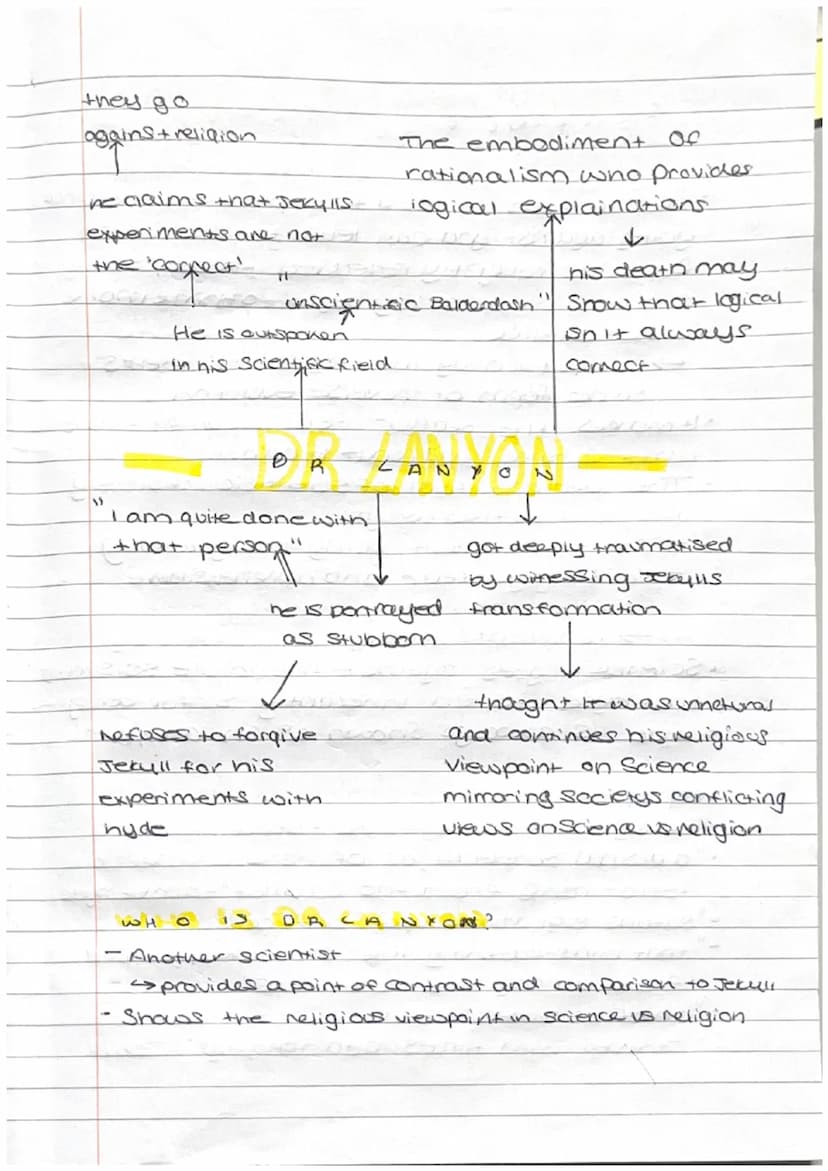 they go
against religion
he claims that Jekylls
experiments are not
the 'correct'
"unscientific Balderdash"
He is outspoken
in his scientific field
The embodiment of
rationalism who provides
logical explainations
his death may
show that logical
isn't always
correct
DR LANYON
DR LANYON
"I am quite done with
that person"
he is portrayed
as stubborn
refuses to forgive
Jekyll for his
experiments with
hyde
got deeply traumatised
by witnessing Jekylls
transformation
thought it was unnetural
and continues his religious
viewpoint on Science
mirroring societys conflicting
views on Science vs religion
WHO IS DR LANYON?
- Another scientist
↳ provides a point of contrast and comparison to Jekyll
- Shows the religious viewpoint in science vs religion